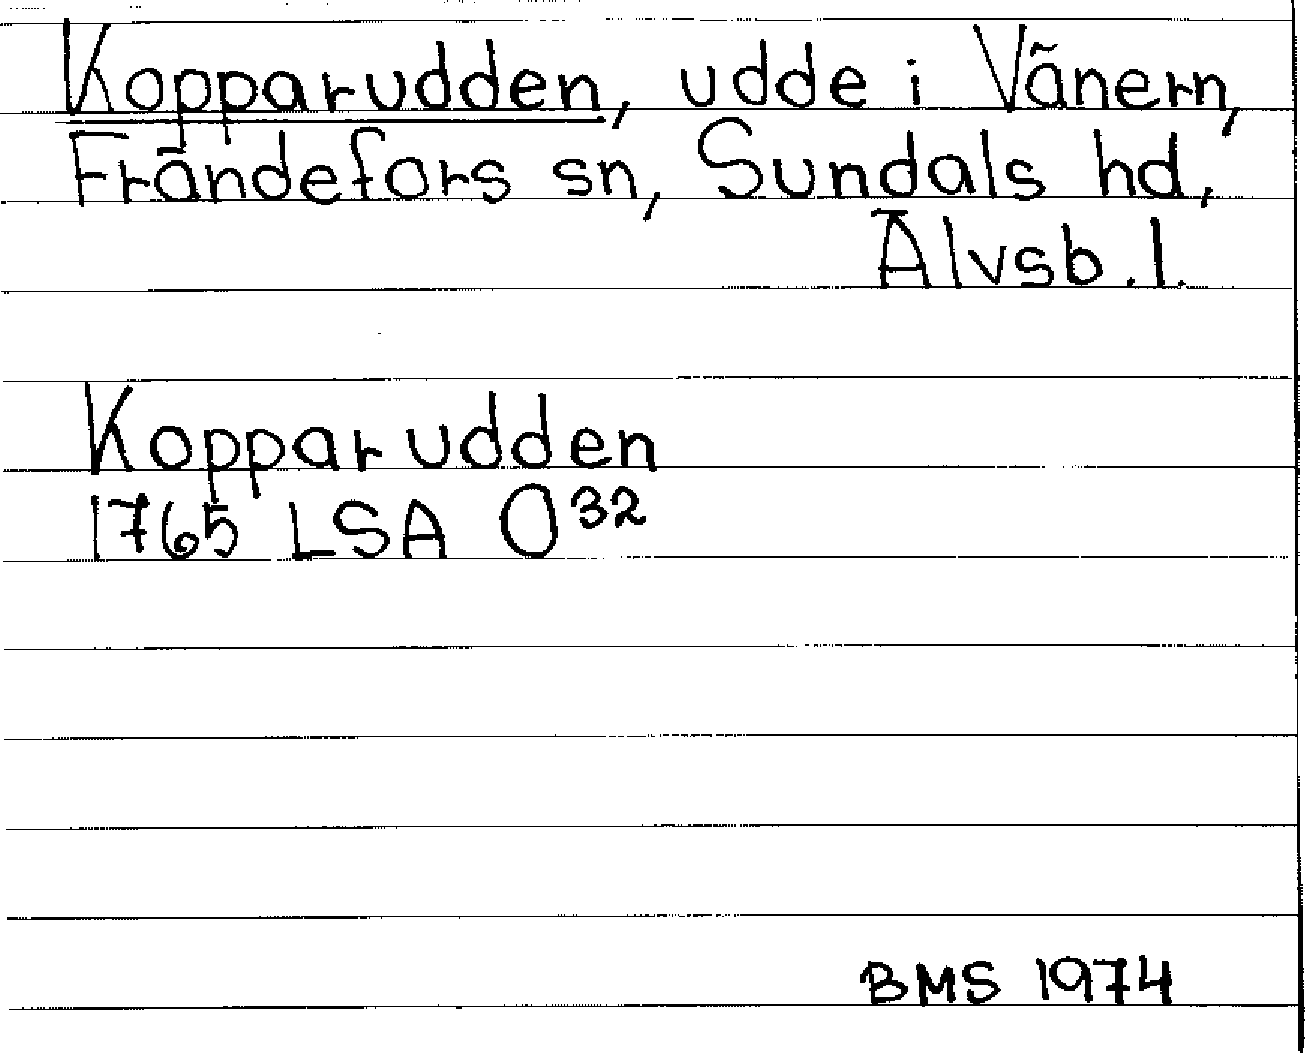 Kopparudden, udde i Vänern,
Frändefors sn, Sundals hd,
Älvsb. l.
Kopparudden
1765 LSA O³²
BMS 1974